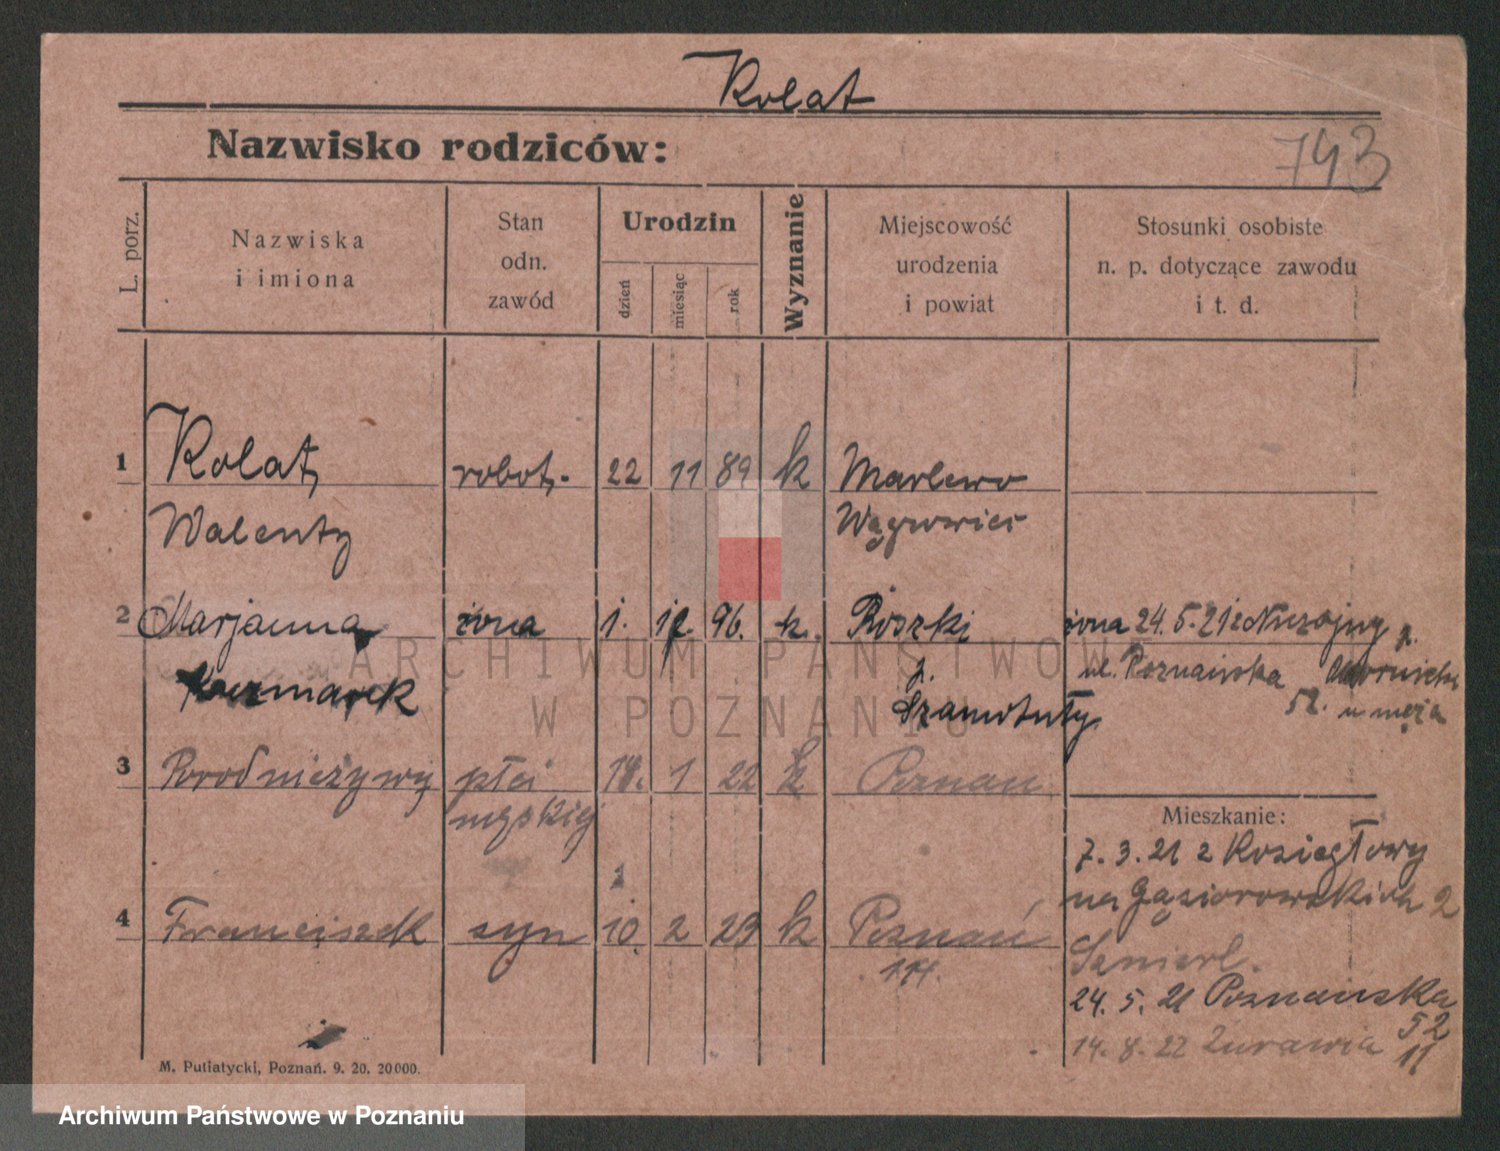 Kolat
Nazwisko rodziców:
743
L. porz.
Nazwiska
i imiona
Stan
odn.
zawód
Urodzin
dzień
miesiąc
rok
Wyznanie
Miejscowość
urodzenia
i powiat
Stosunki osobiste
n. p. dotyczące zawodu
i t. d.
1 Kolat, robot. 22 11 89 k Marlewo
Walenty Wągrowiec
2 Marjanna żona 1. 12. 96. k. Pioszki
żona 24.5.21 z
p.
ul. Poznańska
52. u męża
Kaczmarek Szamotuły
3 Poród nieżywy płci 14. 1 22 k Poznań
męskiej
Mieszkanie:
7. 3. 21 z Koziegłowy
na Gąsiorowskich 2
4 Franciszek syn 10. 2 23 k Poznań
24. 5. 21 Poznańska
52
14. 8. 22 Żurawia 11
M. Putiatycki, Poznań. 9. 20. 20000.
ARCHIWUM PAŃSTWOWE
W POZNANIU
Archiwum Państwowe w Poznaniu